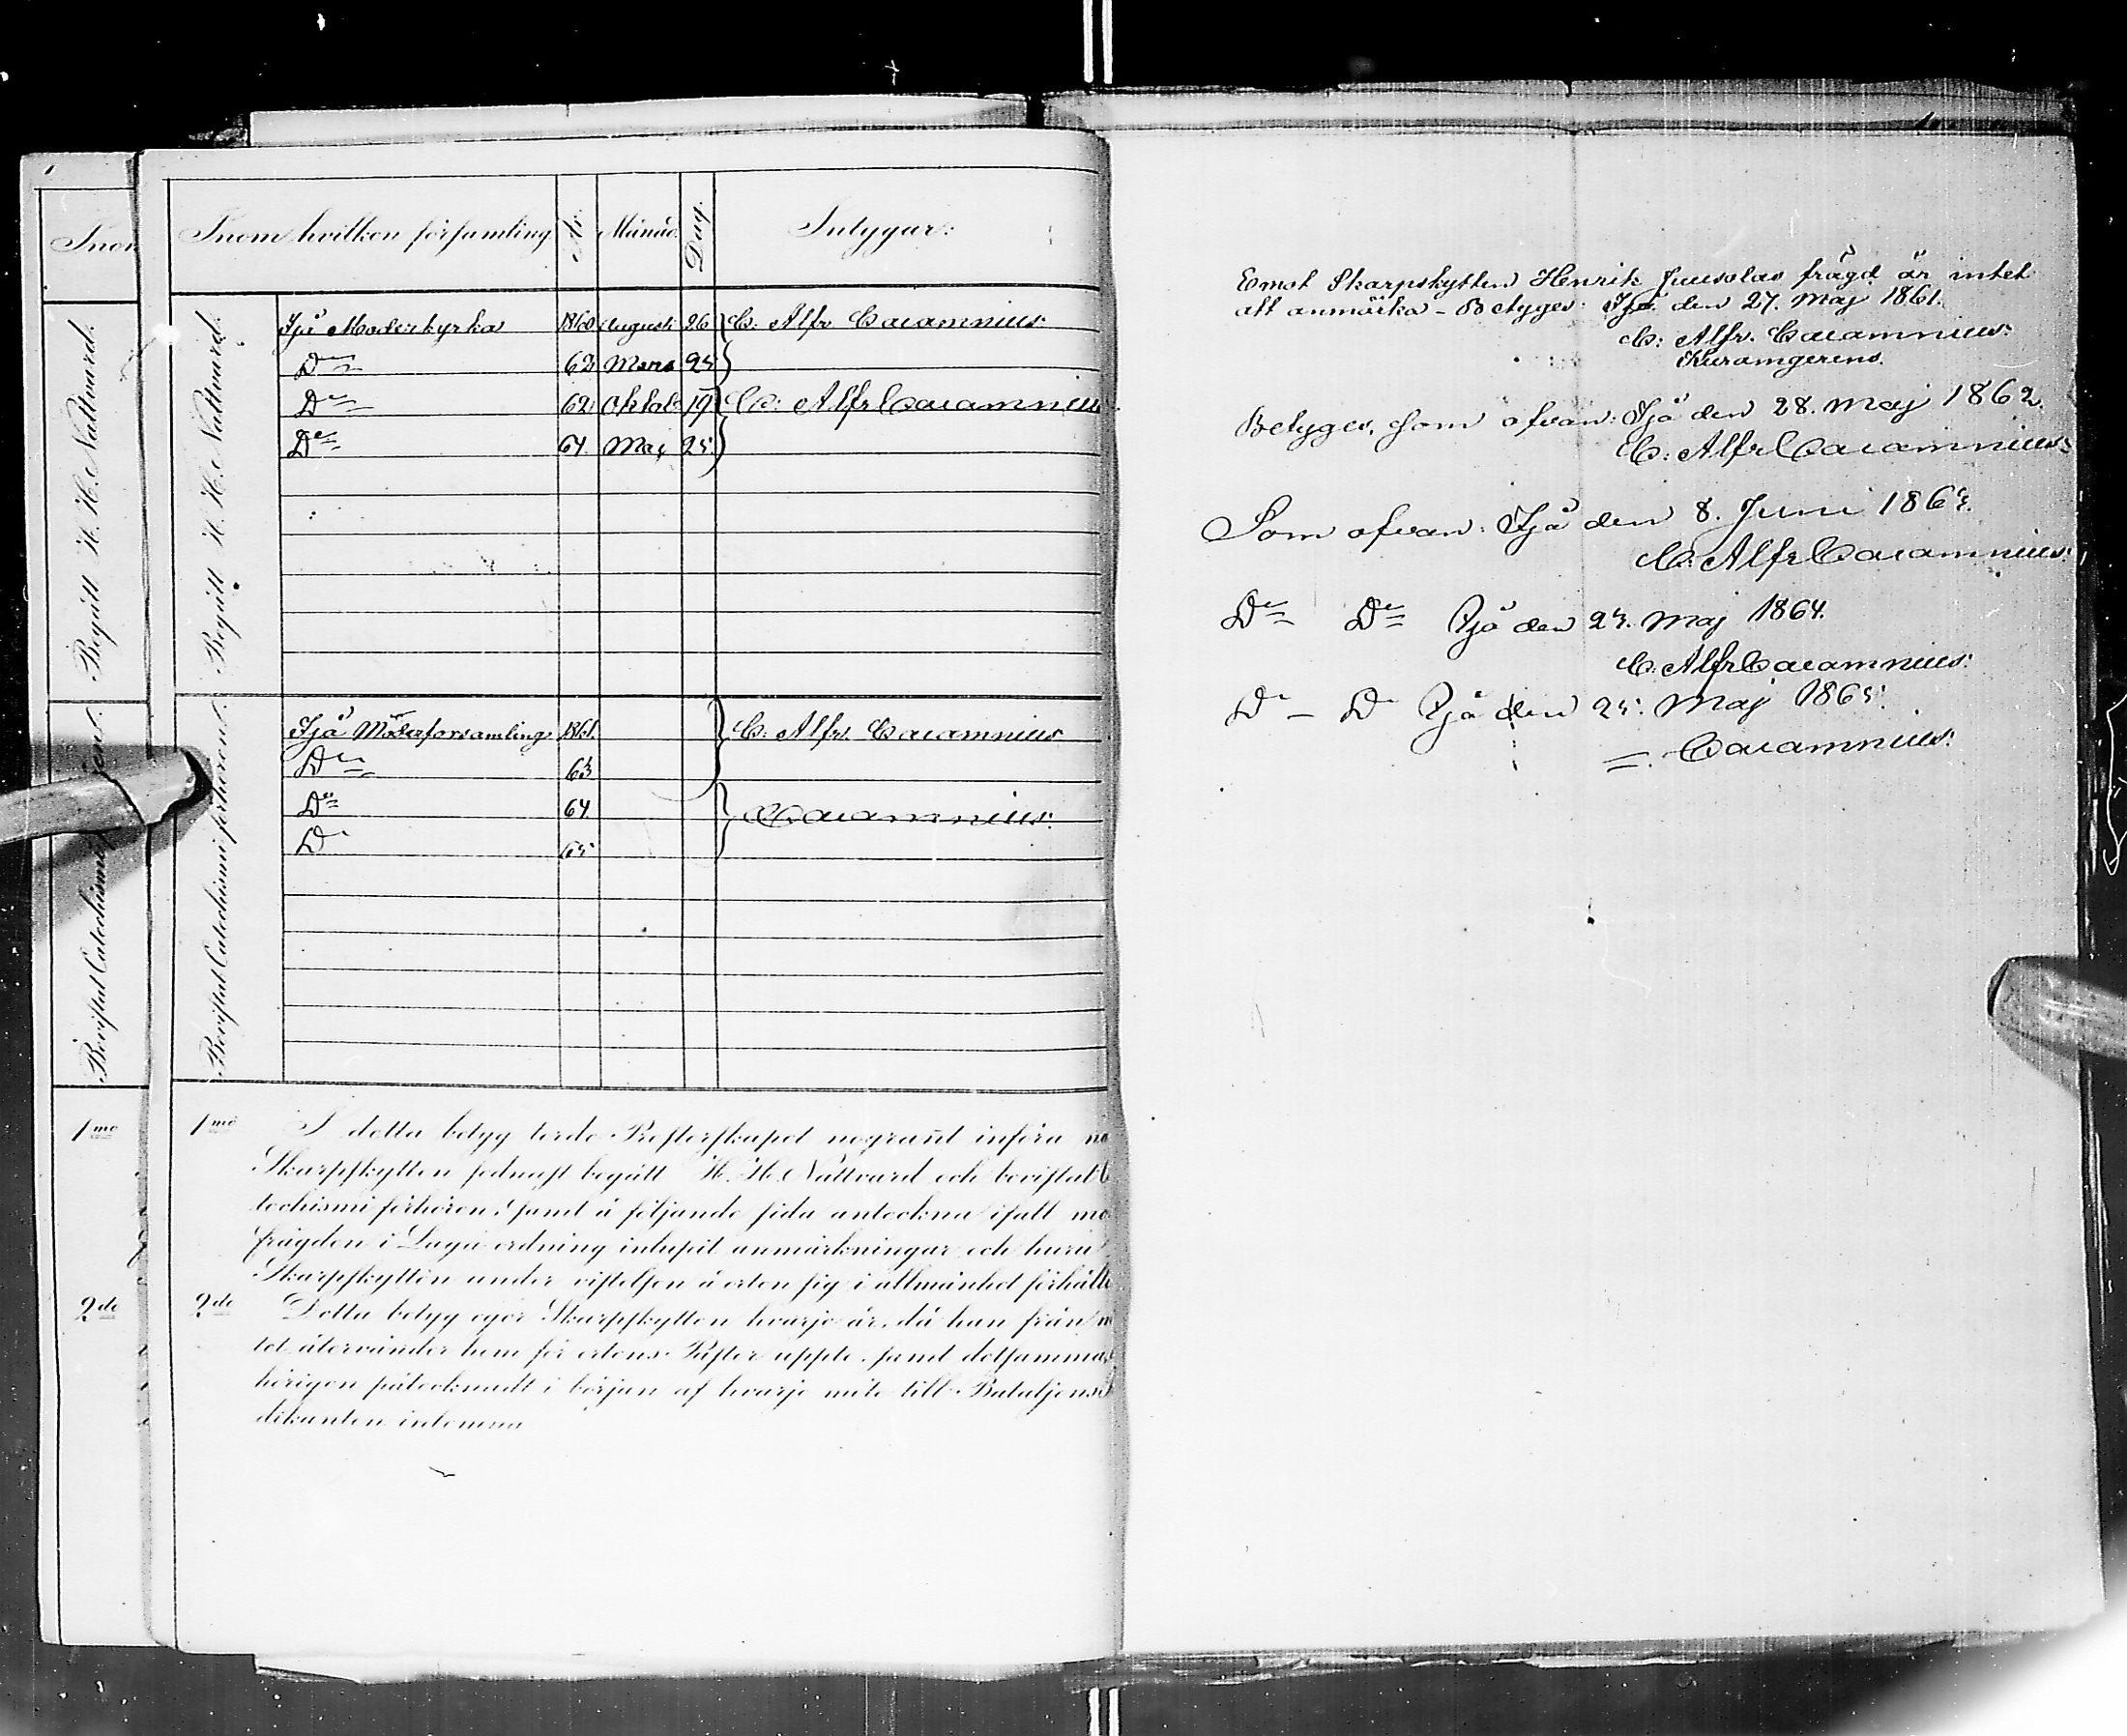 Inom
Inom hvilken församling
År.
Månad.
Dag.
Intygar:
Begått H. H. Nattvard.
Begått H. H. Nattvard.
Ijå Moderkyrka 1860 Augusti 26 C. Alfr Cajamnius
Do 62 Mars 25
Do 62 Oktob 19 C: Alfr Cajamnius
Do 64. Maj 25
Bevistat Catechismi förhören.
Bevistat Catechismi förhören.
Ijå Moderförsamling 1861. C. Alfr. Cajamnius
Do 63
Do 64. Cajamnius.
Do 65
1mo
1mo I detta betyg torde Presterskapet nogrant införa nä
Skarpskytten sednast begått H. H. Nattvard och bevistat C
techismi förhören; samt å följande sida anteckna ifall mo
frägden i Laga ordning inlupit anmärkningar och huru
Skarpskytten under vistelsen å orten sig i allmänhet förhålli
2do
2do Detta betyg eger Skarpskytten hvarje år, då han från m
tet återvänder hem för ortens Pastor uppte, samt detsamma
hörigen påtecknadt i början af hvarje möte till Bataljons
dikanten inlemna
Emot Skarpskytten Henrik Juusolas frägd är intet
att anmärka - Betyges: Ijå den 27. Maj 1861.
C: Alfr. Cajamnius.
Betyges, som ofvan: Ijå den 28. Maj 1862.
C: Alfr Cajamnius.
Som ofvan: Ijå den 8. Juni 1863.
C. Alfr Cajamnius.
Do Do Ijå den 25. Maj 1864.
C. Alfr Cajamnius.
Do - Do Ijå den 25. Maj 1865.
Cajamnius.